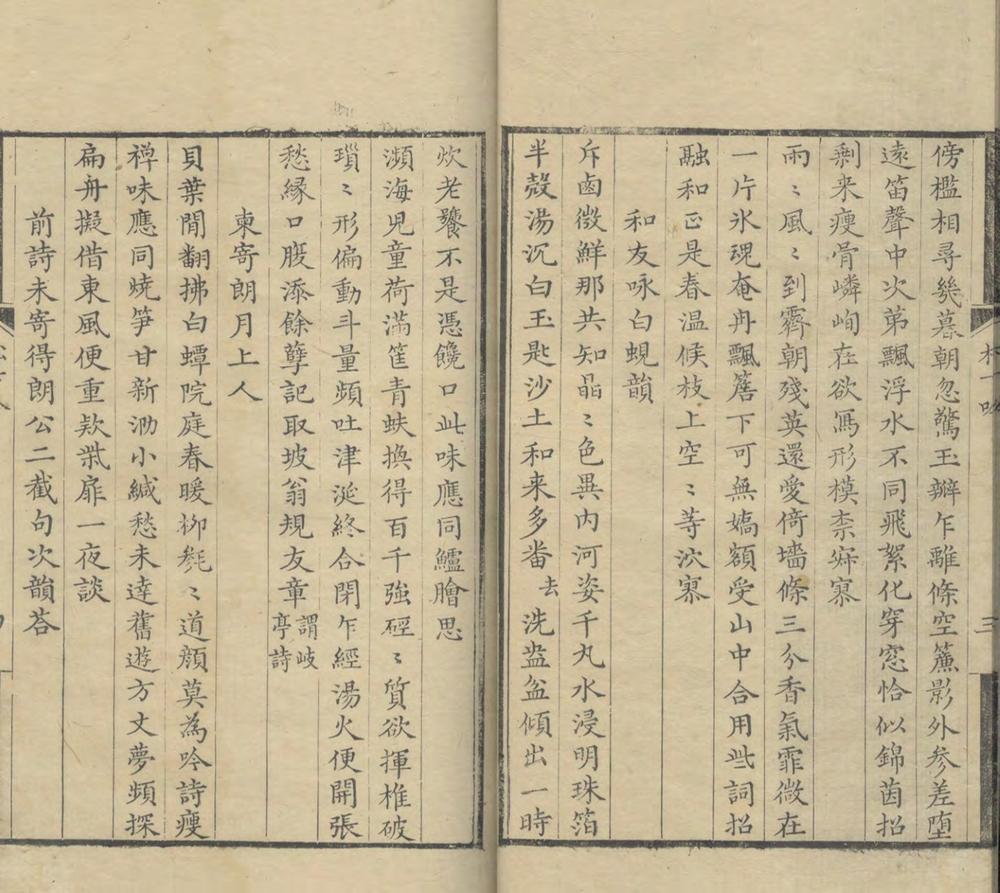 傍檻相尋幾暮朝忽驚玉瓣乍離條空簾影外参差墮
遠笛聲中次苐飄浮水不同飛絮化穿窓恰似錦茵招
剩来瘦骨嶙峋在欲寫形模柰寂寥
雨〻風〻到霽朝殘英還愛倚墻條三分香氣霏微在
一片氷魂奄冉飄簷下可無嬌額受山中合用些詞招
融和正是春温候枝上空〻等泬寥
和友咏白蜆韻
斥鹵微鮮那共知晶〻色異内河姿千丸水浸明珠箔
半殼湯沉白玉匙沙土和来多畨去洗盎盆傾出一時
炊老饕不是憑饞口此味應同鱸膾思
瀕海児童荷滿筐青蚨換得百千強硜〻質欲揮椎破
瑣〻形偏動斗量頻吐津涎終合閉乍經湯火便開張
愁縁口腹添餘孽記取坡翁規友章謂岐亭詩
柬寄朗月上人
貝葉閒翻拂白蟫院庭春暖栁毵〻道顔莫為吟詩瘦
禅味應同燒笋甘新泐小緘愁未達舊遊方丈夢頻探
扁舟擬借東風便重欵柴扉一夜談
前詩未寄得朗公二截句次韻荅
村一吟
三